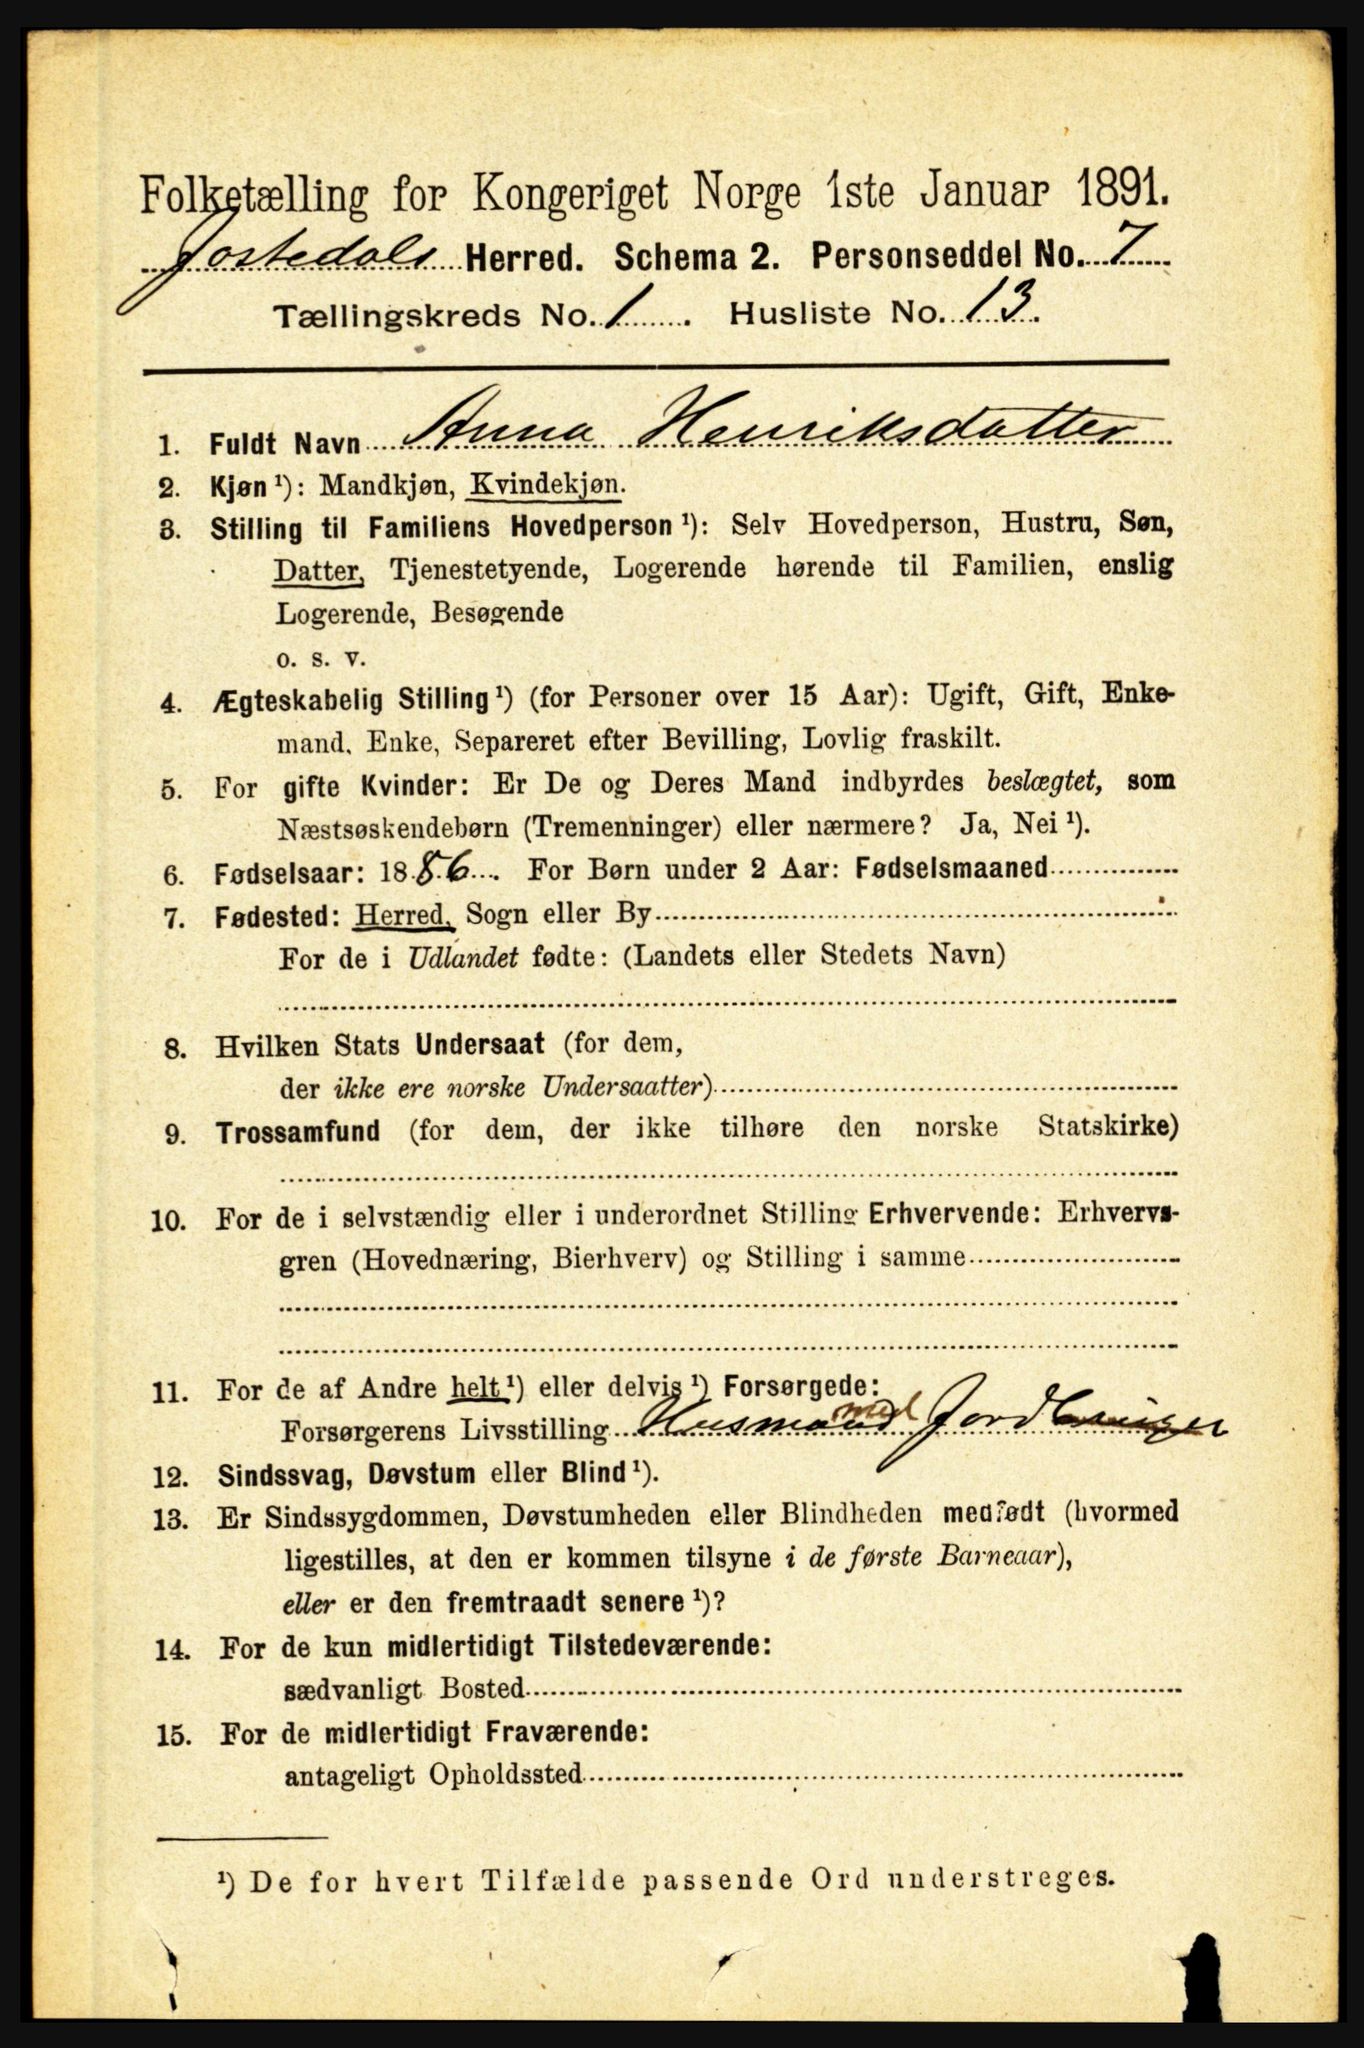 Folketælling for Kongeriget Norge 1ste Januar 1891.
Jostedals Herred. Schema 2. Personseddel No. 7
Tællingskreds No. 1. Husliste No. 13.
1. Fuldt Navn Anna Henriksdatter
2. Kjøn ¹): Mandkjøn, Kvindekjøn.
3. Stilling til Familiens Hovedperson ¹): Selv Hovedperson, Hustru, Søn,
Datter, Tjenestetyende, Logerende hørende til Familien, enslig
Logerende, Besøgende
o. s. v.
4. Ægteskabelig Stilling ¹) (for Personer over 15 Aar): Ugift, Gift, Enke-
mand, Enke, Separeret efter Bevilling, Lovlig fraskilt.
5. For gifte Kvinder: Er De og Deres Mand indbyrdes beslægtet, som
Næstsøskendebørn (Tremenninger) eller nærmere? Ja, Nei ¹).
6. Fødselsaar: 1886. For Børn under 2 Aar: Fødselsmaaned
7. Fødested: Herred, Sogn eller By
For de i Udlandet fødte: (Landets eller Stedets Navn)
8. Hvilken Stats Undersaat (for dem,
der ikke ere norske Undersaatter)
9. Trossamfund (for dem, der ikke tilhøre den norske Statskirke)
10. For de i selvstændig eller i underordnet Stilling Erhvervende: Erhvervs-
gren (Hovednæring, Bierhverv) og Stilling i samme
11. For de af Andre helt ¹) eller delvis ¹) Forsørgede:
Forsørgerens Livsstilling Husmand med Jord
12. Sindssvag, Døvstum eller Blind ¹).
13. Er Sindssygdommen, Døvstumheden eller Blindheden medfødt (hvormed
ligestilles, at den er kommen tilsyne i de første Barneaar),
eller er den fremtraadt senere ¹)?
14. For de kun midlertidigt Tilstedeværende:
sædvanligt Bosted
15. For de midlertidigt Fraværende:
antageligt Opholdssted
¹) De for hvert Tilfælde passende Ord understreges.